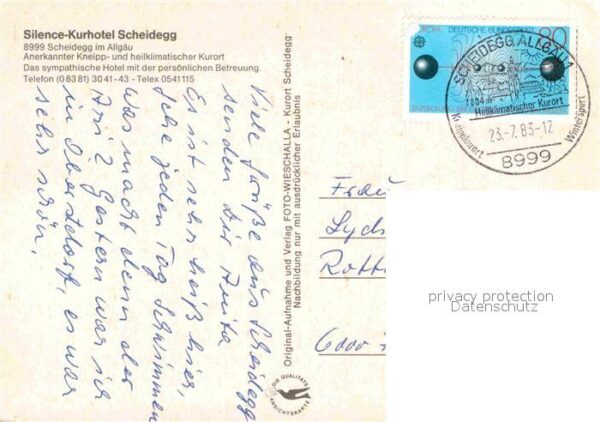 Silence-Kurhotel Scheidegg
8999 Scheidegg im Allgäu
Anerkannter Kneipp- und heilklimatischer Kurort
Das sympathische Hotel mit der persönlichen Betreuung.
Telefon (0 83 81) 30 41 - 43 - Telex 0541115
Viele Grüße aus Scheidegg
senden dir Anita
Es ist sehr heiß hier,
gehe jeden Tag schwimmen
Was macht denn der
Gestern war ich
in Oberstdorf, es war
sehr schön.
Original-Aufnahme und Verlag FOTO-WIESCHALLA - Kurort Scheidegg
Nachbildung nur mit ausdrücklicher Erlaubnis
DIE QUALITÄTS
ANSICHTSKARTE
EUROPA DEUTSCHE BUNDESPOST 80
SCHEIDEGG, ALLGÄU 1
Heilklimatischer Kurort
23.-7.83-12
Wintersport
8999
Frau
Lyd
Rott
6000
privacy protection
Datenschutz